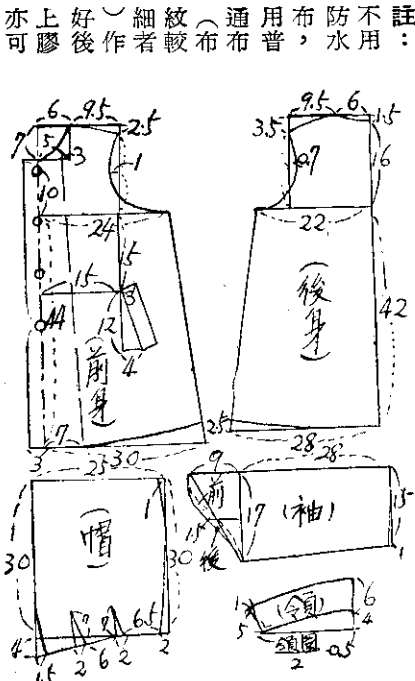 註：
不用
防水
布，
用普
通布
（布
紋較
細者
）作
好後
上膠
亦可
6 9.5 2.5
7 5 3 1
10
24
15
15 3
12
44 4
（前身）
7
3 25 30
9.5 6 1.5
3.5 0.7 16
22
（後身）
42
2.5
28
（帽）
30 1 30
4 6.5
1.5 2 6 2 2
9 28
前 17 （袖） 15
1.5 後 1
1 （領） 6
5 4
領圍
2 0.5